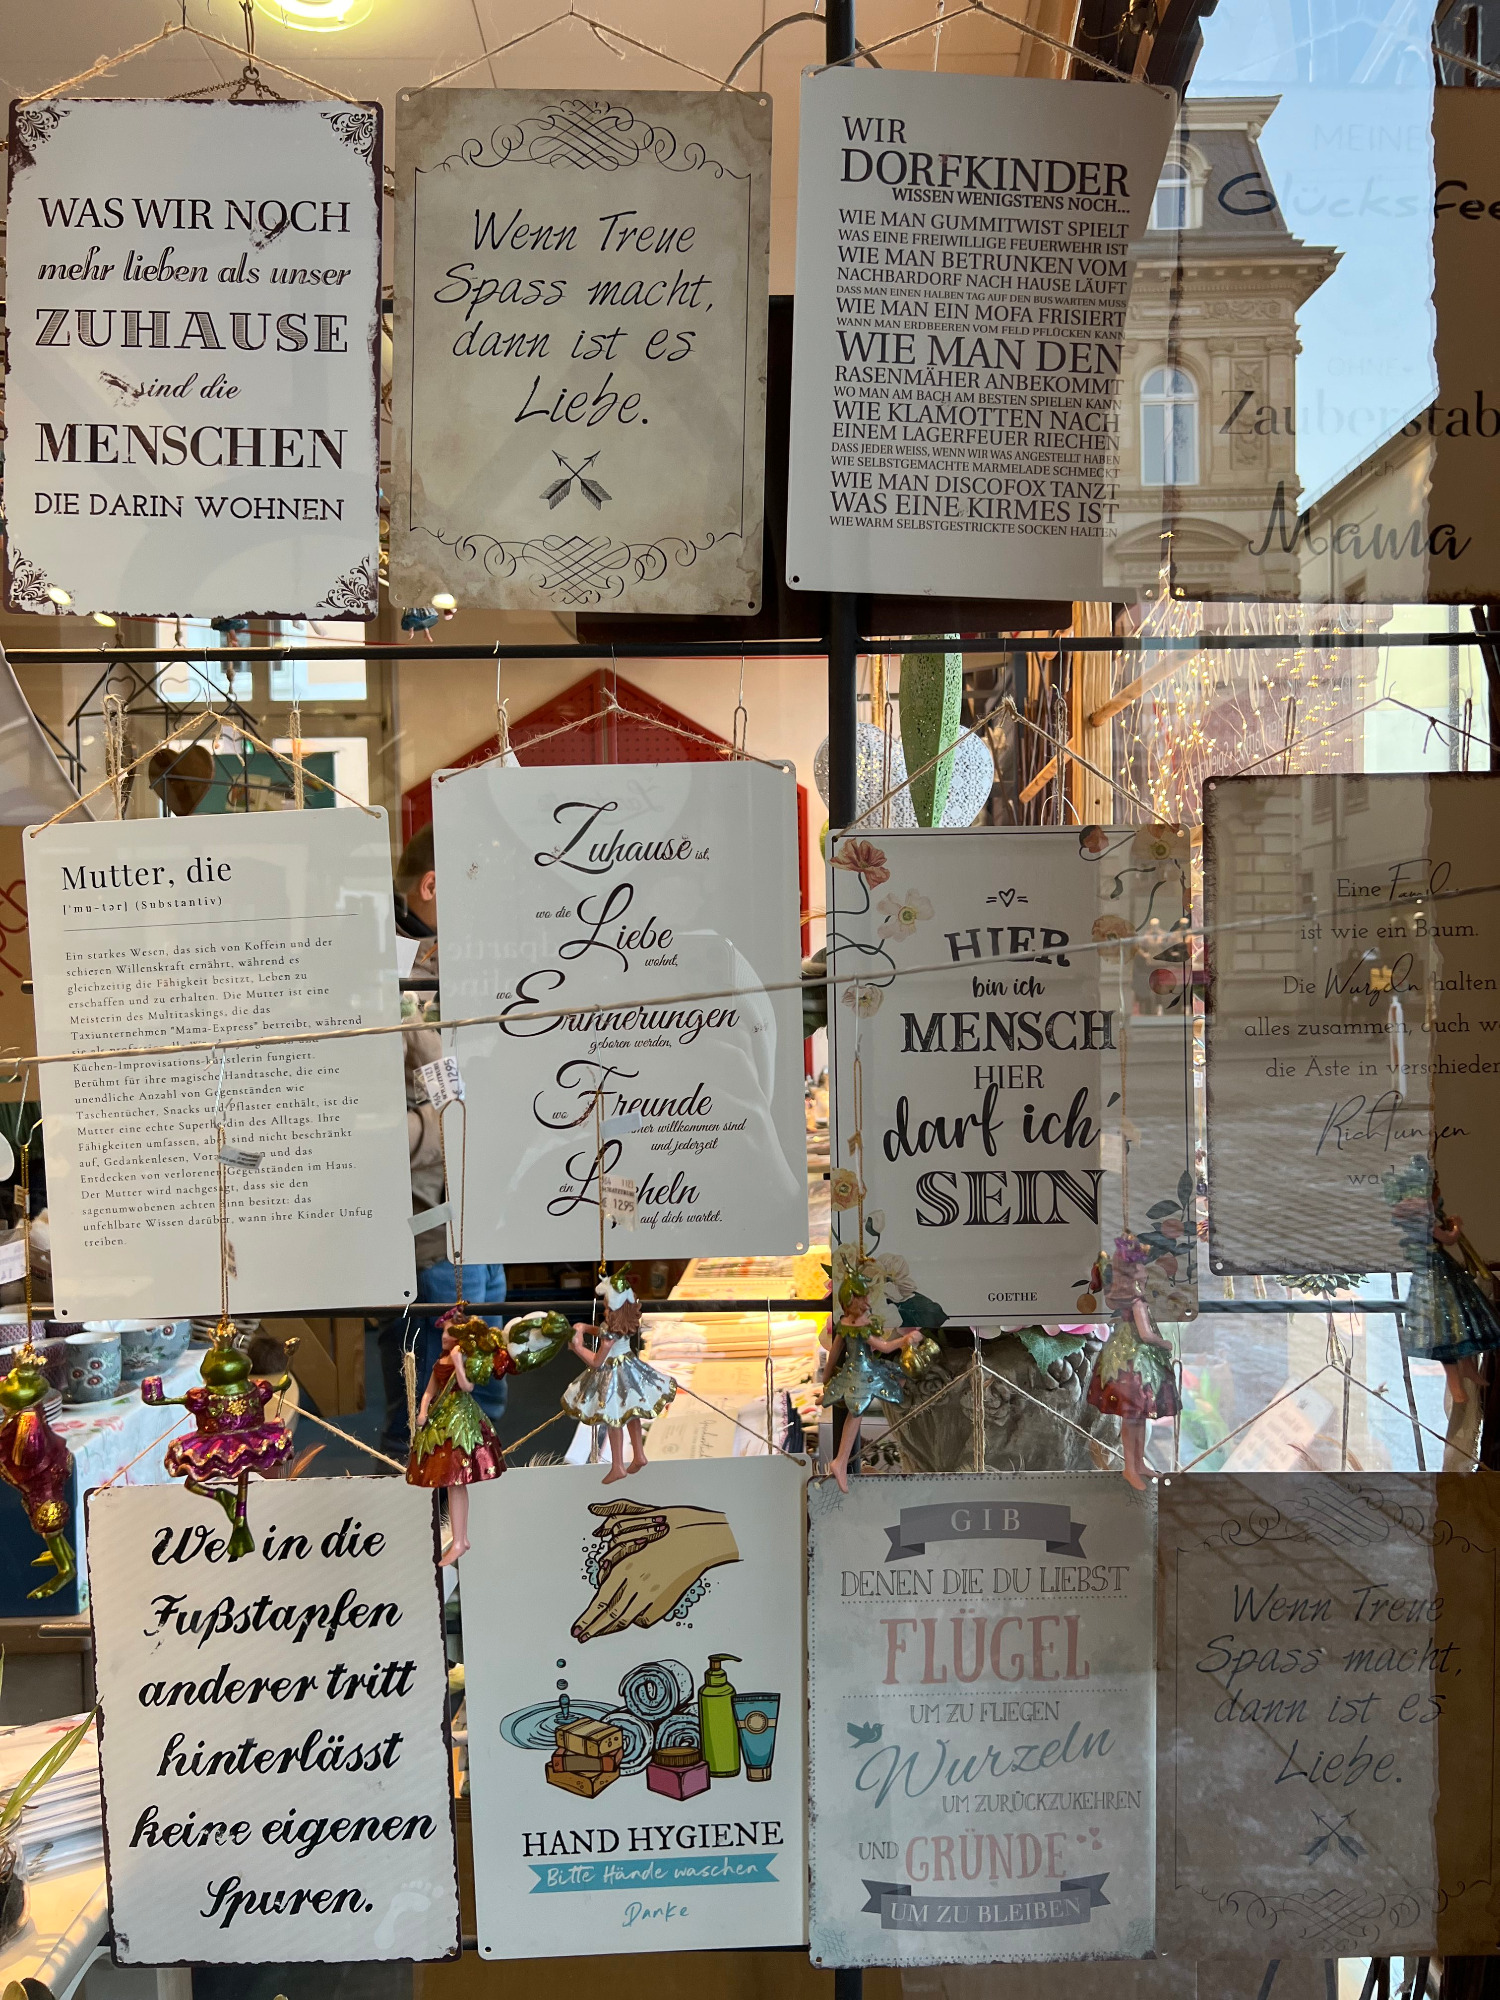 WAS WIR NOCH
mehr lieben als unser
ZUHAUSE
sind die
MENSCHEN
DIE DARIN WOHNEN
Wenn Treue
Spass macht,
dann ist es
Liebe.
WIR
DORFKINDER
WISSEN WENIGSTENS NOCH...
WIE MAN GUMMITWIST SPIELT
WAS EINE FREIWILLIGE FEUERWEHR IST
WIE MAN BETRUNKEN VOM
NACHBARDORF NACH HAUSE LÄUFT
DASS MAN EINEN HALBEN TAG AUF DEN BUS WARTEN MUSS
WIE MAN EIN MOFA FRISIERT
WANN MAN ERDBEEREN VOM FELD PFLÜCKEN KANN
WIE MAN DEN
RASENMÄHER ANBEKOMMT
WO MAN AM BACH AM BESTEN SPIELEN KANN
WIE KLAMOTTEN NACH
EINEM LAGERFEUER RIECHEN
DASS JEDER WEISS, WENN WIR WAS ANGESTELLT HABEN
WIE SELBSTGEMACHTE MARMELADE SCHMECKT
WIE MAN DISCOFOX TANZT
WAS EINE KIRMES IST
WIE WARM SELBSTGESTRICKTE SOCKEN HALTEN
MEINE
Glücksfee
OHNE
Zauberstab
Mama
Mutter, die
['mu-tər] (Substantiv)
Ein starkes Wesen, das sich von Koffein und der
schieren Willenskraft ernährt, während es
gleichzeitig die Fähigkeit besitzt, Leben zu
erschaffen und zu erhalten. Die Mutter ist eine
Meisterin des Multitaskings, die das
Taxiunternehmen "Mama-Express" betreibt, während
sie als
Küchen-Improvisations-künstlerin fungiert.
Berühmt für ihre magische Handtasche, die eine
unendliche Anzahl von Gegenständen wie
Taschentücher, Snacks und Pflaster enthält, ist die
Mutter eine echte Superheldin des Alltags. Ihre
Fähigkeiten umfassen, aber sind nicht beschränkt
auf, Gedankenlesen, und das
Entdecken von verlorenen Gegenständen im Haus.
Der Mutter wird nachgesagt, dass sie den
sagenumwobenen achten Sinn besitzt: das
unfehlbare Wissen darüber, wann ihre Kinder Unfug
treiben.
Zuhause ist,
wo die Liebe
wohnt,
wo Erinnerungen
geboren werden,
wo Freunde
immer willkommen sind
und jederzeit
ein Lächeln
auf dich wartet.
1295
1295
HIER
bin ich
MENSCH
HIER
darf ich'
SEIN
GOETHE
Eine
ist wie ein Baum.
Die Wurzeln halten
alles zusammen, auch
die Äste in
Richtungen
Wer in die
Fußstapfen
anderer tritt
hinterlässt
keine eigenen
Spuren.
HAND HYGIENE
Bitte Hände waschen
Danke
GIB
DENEN DIE DU LIEBST
FLÜGEL
UM ZU FLIEGEN
Wurzeln
UM ZURÜCKZUKEHREN
UND GRÜNDE
UM ZU BLEIBEN
Wenn Treue
Spass macht,
dann ist es
Liebe.